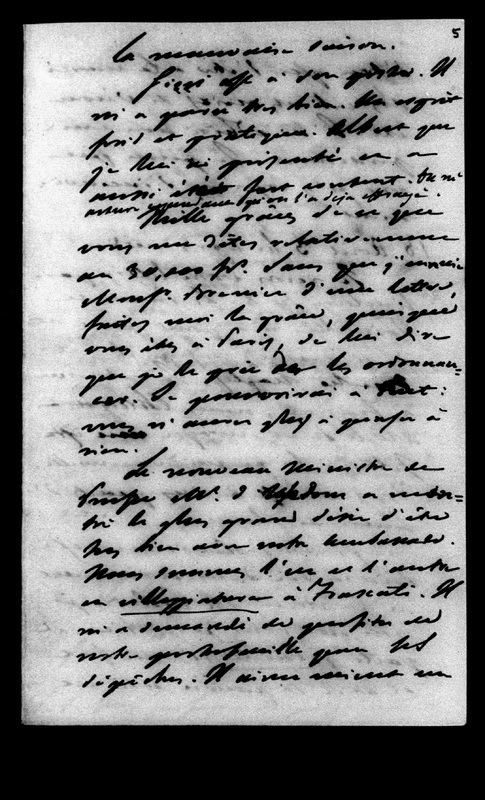 5
la mauvaise saison.
est à son poste. Il
m'a parlé très bien. Un esprit
froid et pratique. Albert que
je lui ai présenté en a
aussi été fort content. On m'
assure cependant qu'on l'a déjà effrayé.
Mille grâces de ce que
vous me dites relativement
au 30,000 fr. Sans que j'ennuie
Monsr. d'une lettre,
faites moi la grâce, quoique
vous êtes à Paris, de lui dire
que je le prie de les ordonnan=
cer. Je pourvoirai à tout:
vous n'aurez plus à penser à
rien.
Le nouveau Ministre de
Prusse Mr. d' a mon=
tré le plus grand désir d'être
très bien avec notre ambassade.
Nous sommes l'un et l'autre
en villeggiatura à Frascati. Il
m'a demandé de profiter de
notre portefeuille pour ses
dépêches. Il aime mieux un